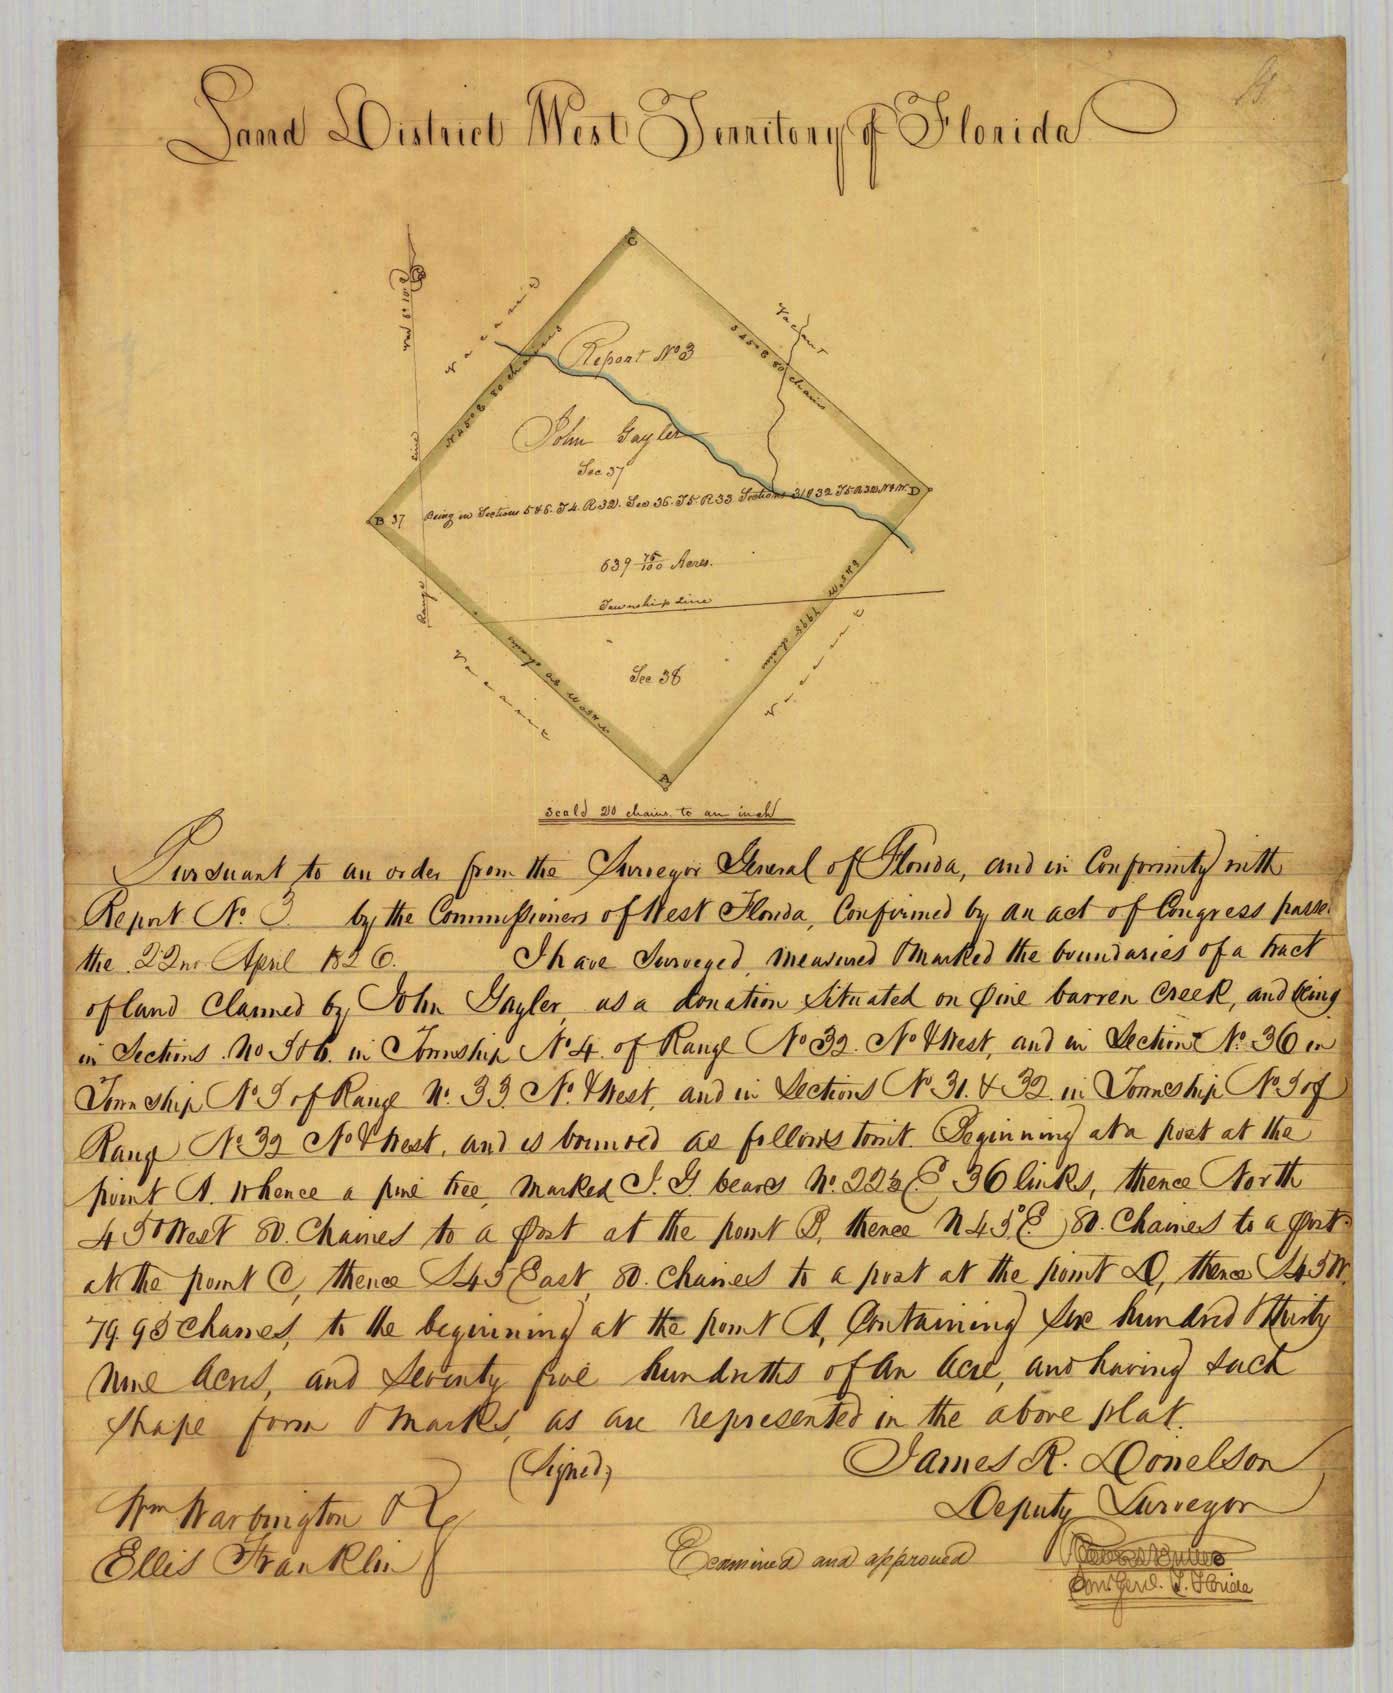 Land District West Territory of Florida
C
Vacant
Vacant
Report No 3
N 45° E 80 chains
S 45° E 80 chains
John Gayler
Sec 37
line
B 37 Being in Sections 5 & 6. T 4. R 32. Sec 36. T 5. R 33. Sections 31 & 32 T 5. R 32 N & W. D
639 75/100 Acres.
Township Line
Range
Sec 38
S 45 W. 79 95 chains
N 45° W 80 chains
Vacant
Vacant
A
Scale 20 chains to an inch
Pursuant to an order from the Surveyor General of Florida, and in Conformity with
Report No. 3 by the Commissioners of West Florida, Confirmed by an act of Congress passed
the 22nd April 1826. I have Surveyed, measured & marked the boundaries of a tract
of land Claimed by John Gayler, as a donation Situated on Pine barren Creek, and being
in Sections No 5 & 6. in Township No 4. of Range No 32. No & West, and in Section No. 36 in
Township No 5 of Range No. 33. No. & West, and in Sections No 31. & 32 in Township No 5 of
Range No 32 No & West, and is bounded as follows towit. Beginning at a post at the
point A. Whence a pine tree, marked J. G. bears No. 22½ E 36 links, thence North
45° West 80. Chaines to a Post at the point B, thence N 45° E. 80. Chaines to a Post
at the point C, thence S 45 East, 80. Chaines to a post at the point D, thence S 45 W.
79.95 Chaines, to the beginning at the point A, Containing Six hundred & thirty
nine Acres, and Seventy five hundreths of an Acre, and having such
shape form & marks, as are represented in the above plat.
(Signed) James R. Donelson
Wm Warbington Deputy Surveyor
Ellis Franklin
Examined and approved Robert Butler
Surv Genl. T. Florida